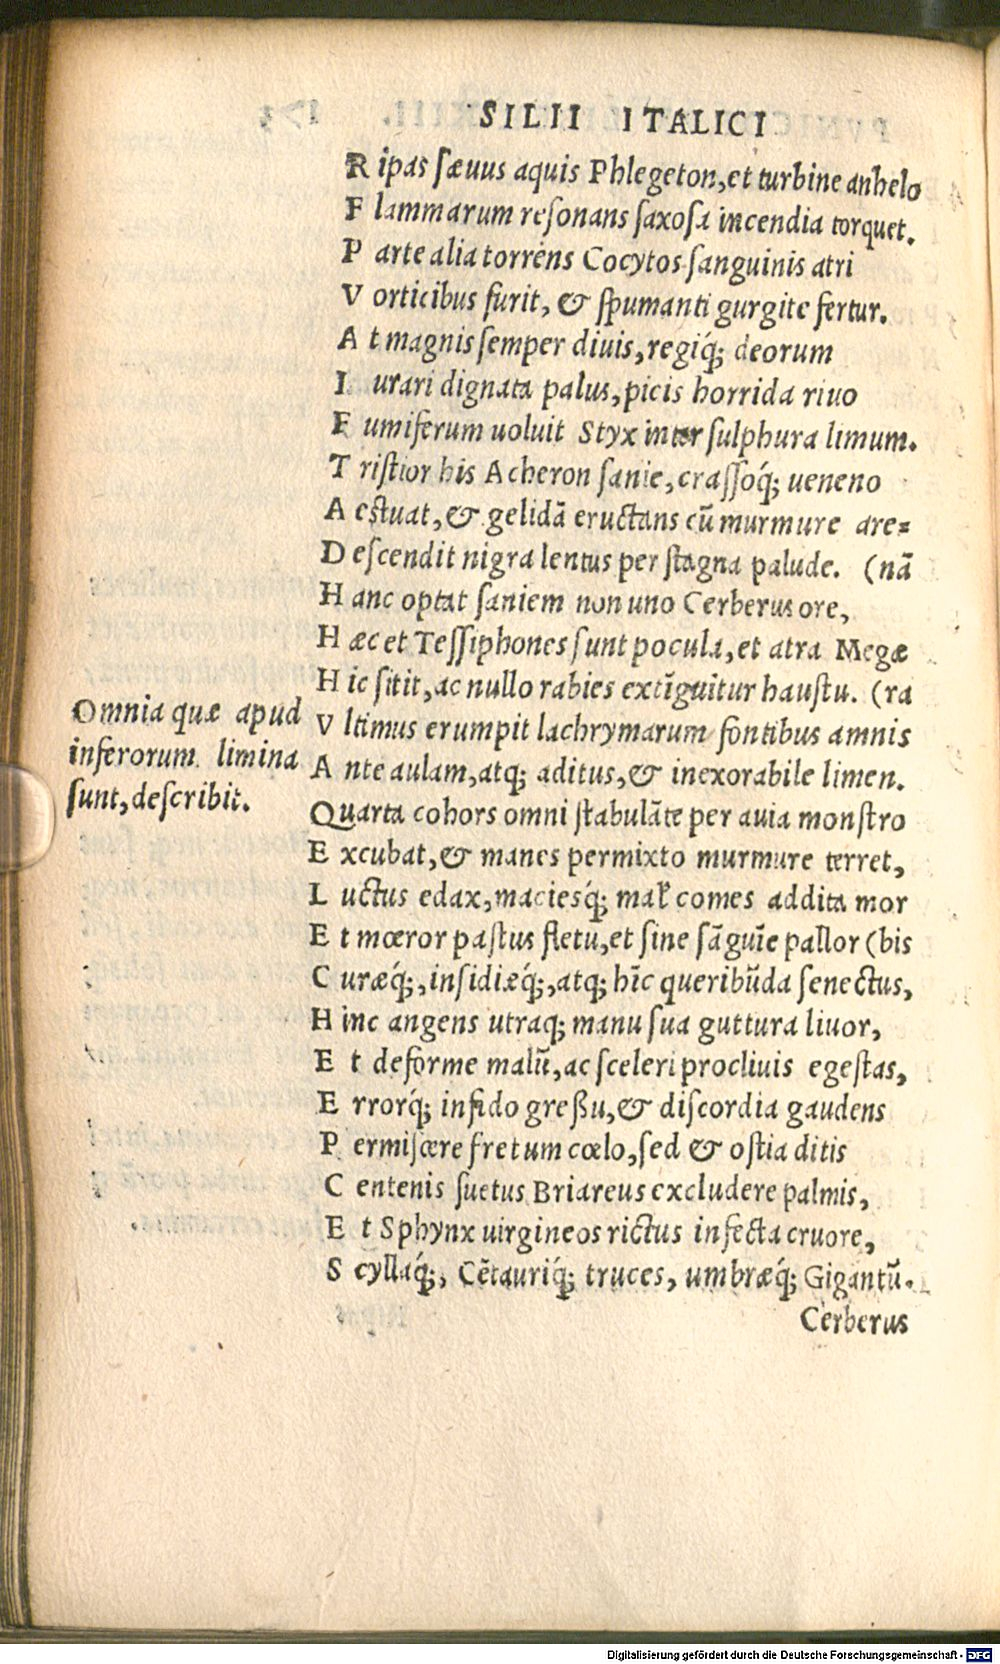 SILII ITALICI
Ripas sæuus aquis Phlegeton, et turbine anhelo
Flammarum resonans saxosa incendia torquet.
Parte alia torrens Cocytos sanguinis atri
Vorticibus furit, & spumanti gurgite fertur.
At magnis semper diuis, regiq́; deorum
Iurari dignata palus, picis horrida riuo
Fumiferum uoluit Styx inter sulphura limum.
Tristior his Acheron sanie, crassoq́; ueneno
Aestuat, & gelidā eructans cū murmure are=
Descendit nigra lentus per stagna palude. (nā
Hanc optat saniem non uno Cerberus ore,
Hæc et Tessiphones sunt pocula, et atra Megæ
Hic sitit, ac nullo rabies extīguitur haustu. (ra
Vltimus erumpit lachrymarum fontibus amnis
Ante aulam, atq; aditus, & inexorabile limen.
Quarta cohors omni stabulāte per auia monstro
Excubat, & manes permixto murmure terret,
Luctus edax, maciesq́; mal' comes addita mor
Et mœror pastus fletu, et sine sāguīe pallor (bis
Curæq́;, insidiæq́;, atq; hīc queribūda senectus,
Hinc angens utraq; manu sua guttura liuor,
Et deforme malū, ac sceleri procliuis egestas,
Errorq́; infido greßu, & discordia gaudens
Permiscere fretum cœlo, sed & ostia ditis
Centenis suetus Briareus excludere palmis,
Et Sphynx uirgineos rictus infecta cruore,
Scyllaq́;, Cētauriq́; truces, umbræq́; Gigantū.
Cerberus
Omnia quæ apud
inferorum limina
sunt, describit.
Digitalisierung gefördert durch die Deutsche Forschungsgemeinschaft - DFG